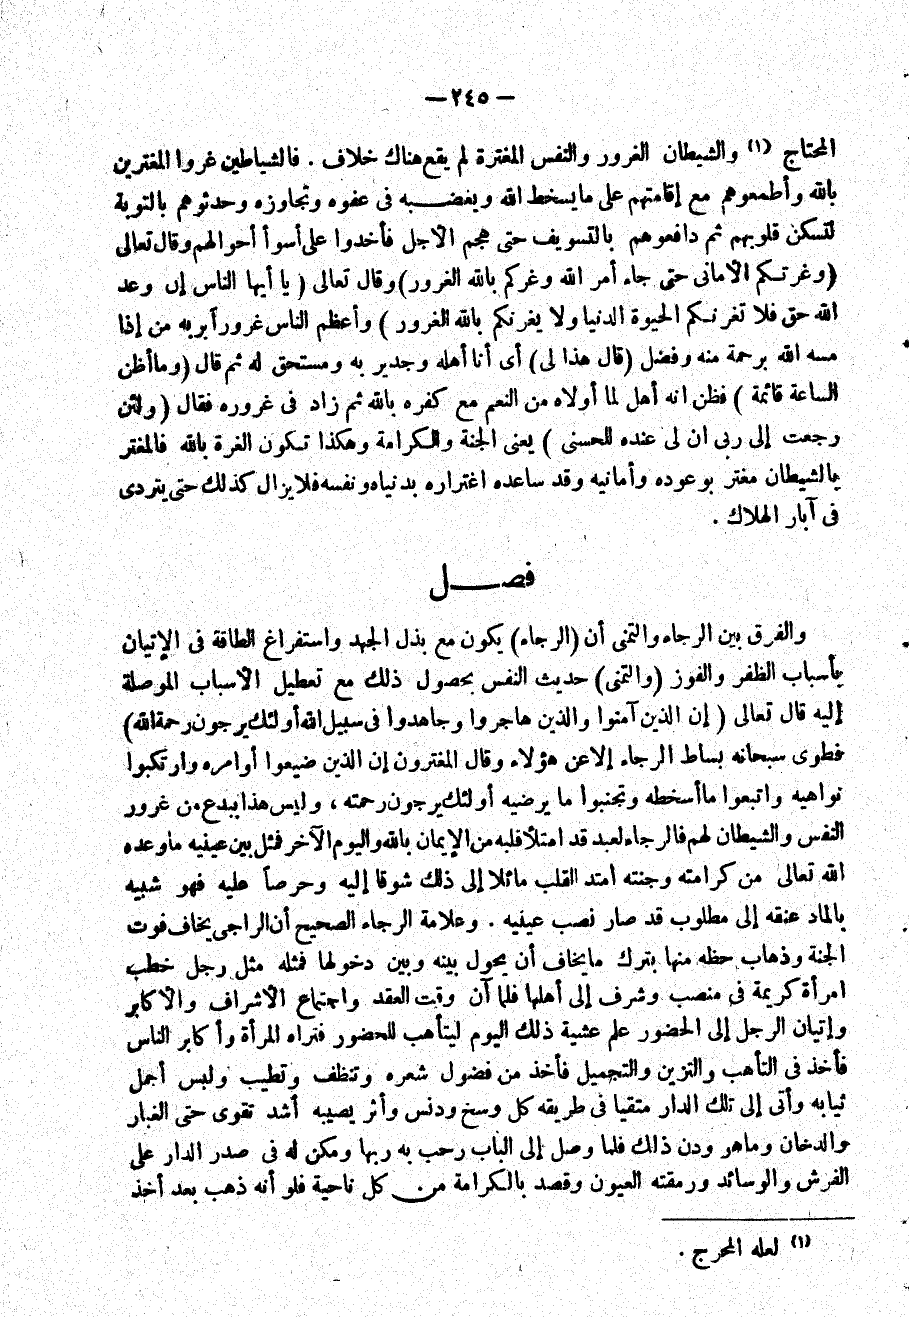 — ٢٤٥ —
المحتاج (١) والشيطان الغرور والنفس المغترة لم يقع هناك خلاف . فالشياطين غروا المغترين
بالله وأطمعوهم مع إقامتهم على ما يسخط الله ويغضبه فى عفوه وتجاوزه وحدثوهم بالتوبة
لتسكن قلوبهم ثم دافعوهم بالتسويف حتى هجم الأجل فأخذوا على أسوأ أحوالهم وقال تعالى
( وغرتكم الأمانى حتى جاء أمر الله وغركم بالله الغرور ) وقال تعالى ( يا أيها الناس إن وعد
الله حق فلا تغرنكم الحيوة الدنيا ولا يغرنكم بالله الغرور ) وأعظم الناس غروراً بربه من إذا
مسه الله برحمة منه وفضل ( قال هذا لى ) أى أنا أهله وجدير به ومستحق له ثم قال ( وما أظن
الساعة قائمة ) فظن انه أهل لما أولاه من النعم مع كفره بالله ثم زاد فى غروره فقال ( ولئن
رجعت إلى ربى ان لى عنده للحسنى ) يعنى الجنة والكرامة وهكذا تكون الغرة بالله فالمغتر
بالشيطان مغتر بوعوده وأمانيه وقد ساعده اغتراره بدنياه ونفسه فلا يزال كذلك حتى يتردى
فى آبار الهلاك .
فصل
والفرق بين الرجاء والتمنى أن ( الرجاء ) يكون مع بذل الجهد واستفراغ الطاقة فى الإتيان
بأسباب الظفر والفوز ( والتمنى ) حديث النفس بحصول ذلك مع تعطيل الأسباب الموصلة
إليه قال تعالى ( إن الذين آمنوا والذين هاجروا وجاهدوا فى سبيل الله أولئك يرجون رحمة الله )
فطوى سبحانه بساط الرجاء إلا عن هؤلاء وقال المغترون إن الذين ضيعوا أوامره وارتكبوا
نواهيه واتبعوا ما أسخطه وتجنبوا ما يرضيه أولئك يرجون رحمته ، وليس هذا ببدع من غرور
النفس والشيطان لهم فالرجاء لعبد قد امتلأ قلبه من الإيمان بالله واليوم الآخر فمثل بين عينيه ما وعده
الله تعالى من كرامته وجنته أمتد القلب مائلا إلى ذلك شوقا إليه وحرصاً عليه فهو شبيه
بالماد عنقه إلى مطلوب قد صار نصب عينيه . وعلامة الرجاء الصحيح أن الراجى يخاف فوت
الجنة وذهاب حظه منها بترك ما يخاف أن يحول بينه وبين دخولها فمثله مثل رجل خطب
امرأة كريمة فى منصب وشرف إلى أهلها فلما آن وقت العقد واجتماع الأشراف والأكابر
وإتيان الرجل إلى الحضور علم عشية ذلك اليوم ليتأهب للحضور فتراه المرأة وأكابر الناس
فأخذ فى التأهب والتزين والتجميل فأخذ من فضول شعره وتنظف وتطيب ولبس أجمل
ثيابه وأتى إلى تلك الدار متقيا فى طريقه كل وسخ ودنس وأثر يصيبه أشد تقوى حتى الغبار
والدخان وما هو ودن ذلك فلما وصل إلى الباب رحب به ربها ومكن له فى صدر الدار على
الفرش والوسائد ورمقته العيون وقصد بالكرامة من كل ناحية فلو أنه ذهب بعد أخذ
(١) لعله المحرج .